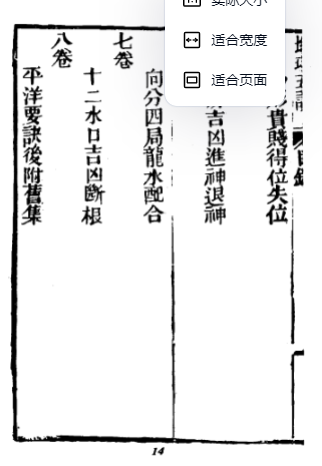 实际大小
适合宽度
适合页面
目錄
貴賤得位失位
吉凶進神退神
七卷
向分四局龍水配合
十二水口吉凶斷根
八卷
平洋要訣後附舊集
14